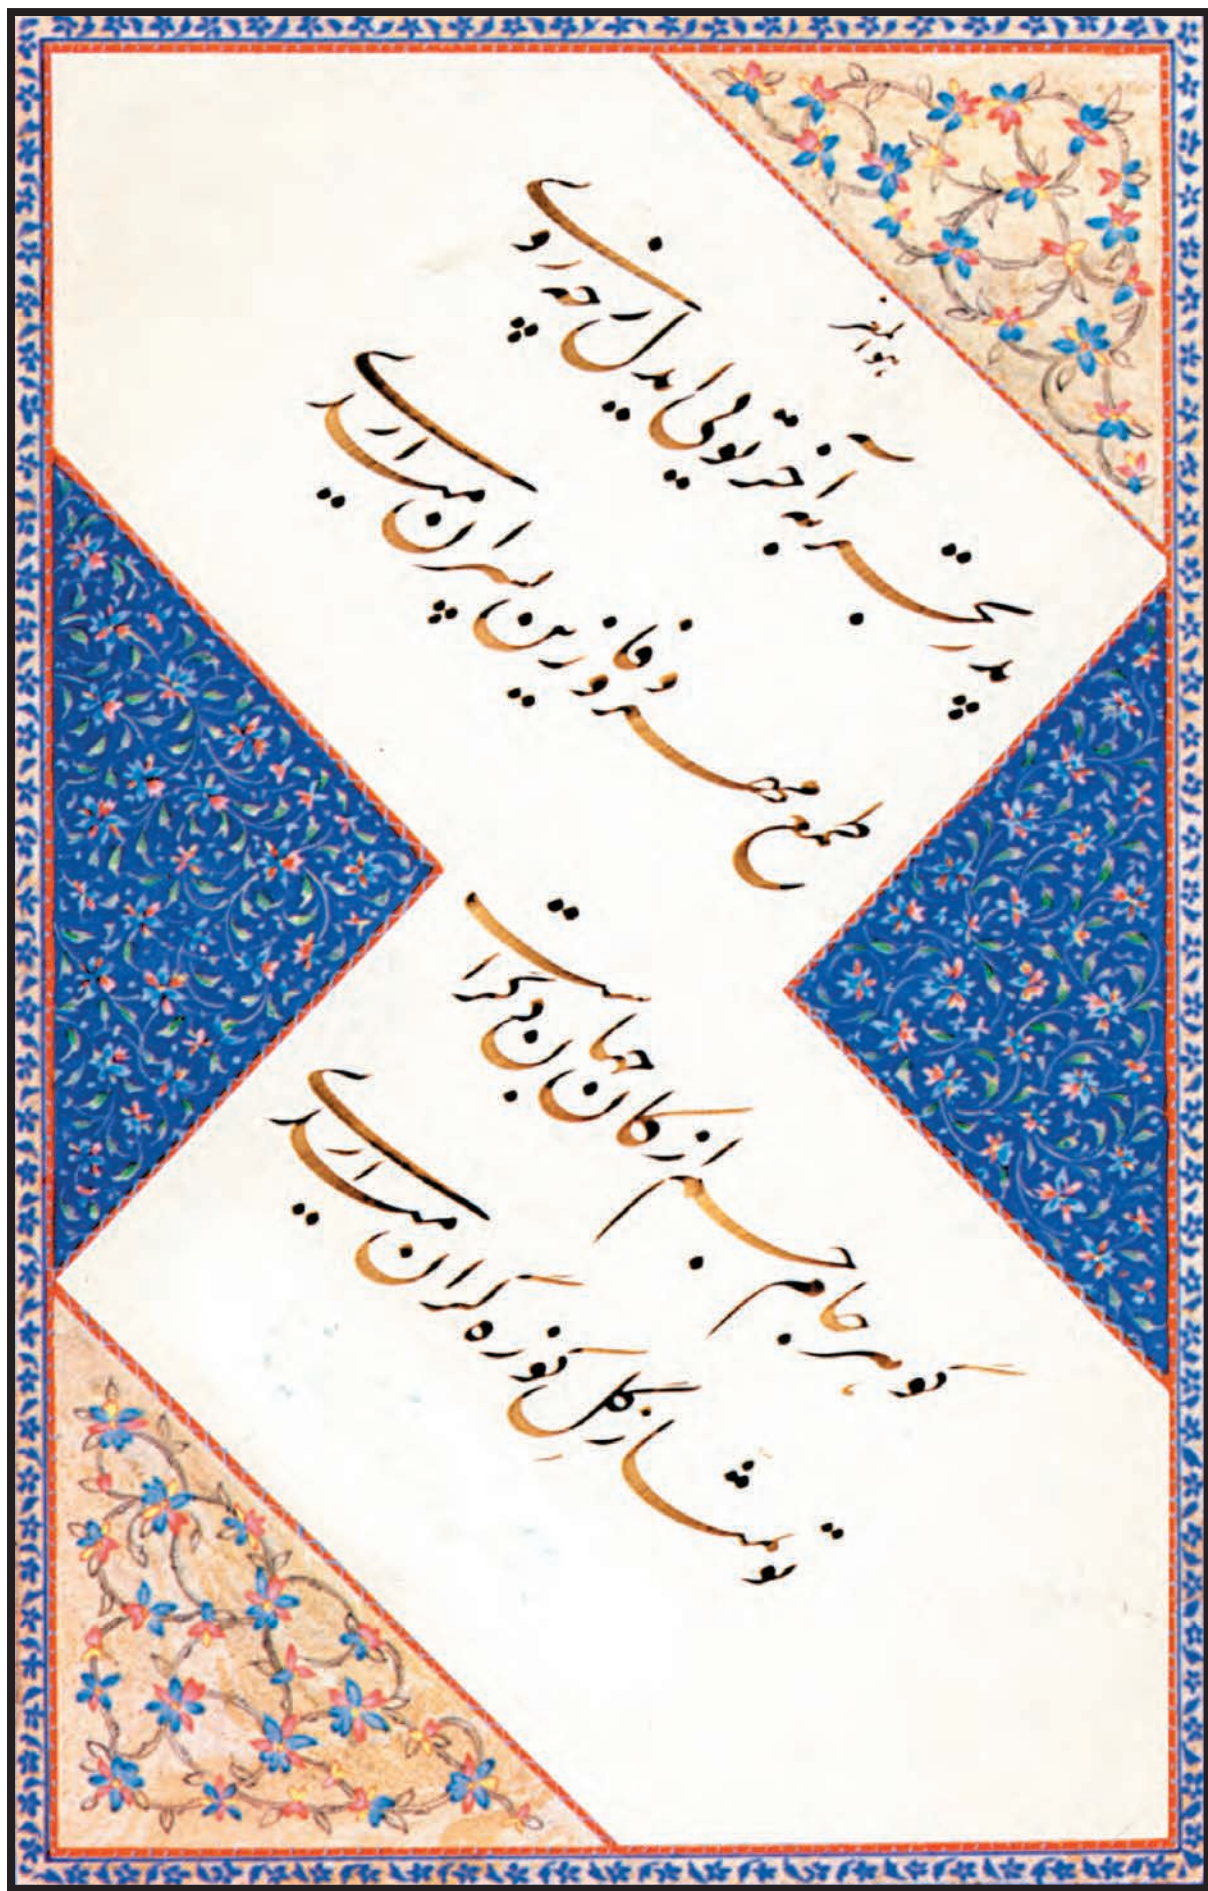 هوالمعز
پدر تجربه آخر تویی ایدل ز چه روی
طمع مهر و وفا زین پسران میداری
گوهر جام جم از کان جهان دگر است
تو تمنا ز گل کوزه گران میداری